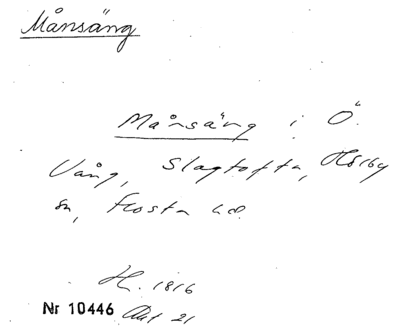 Månsäng
Månsäng i Ö.
Vång, Slagtofta, Hörby
sn, Frosta hd.
H. 1816
Nr 10446 Akt 21